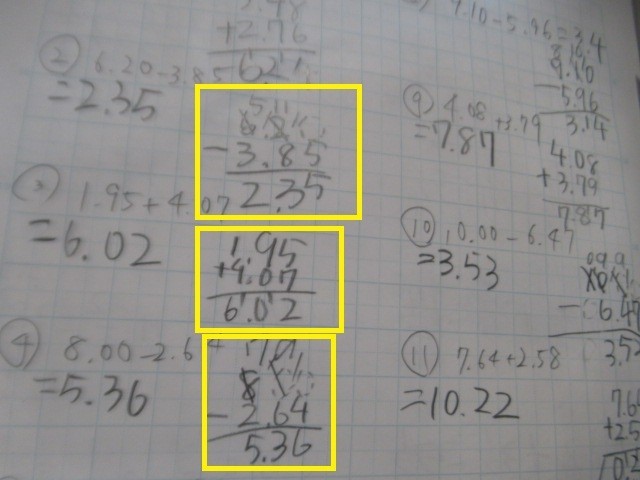 +2.76
6.2
② 6.20-3.85
=2.35
-3.85
2.35
③ 1.95+4.07
=6.02
1.95
+4.07
6.02
④ 8.00-2.64
=5.36
8
-2.64
5.36
9.10-5.96=3.4
9.10
-5.96
3.14
⑨ 4.08+3.79
=7.87
4.08
+3.79
7.87
⑩ 10.00-6.47
=3.53
-6.47
⑪ 7.64+2.58
=10.22